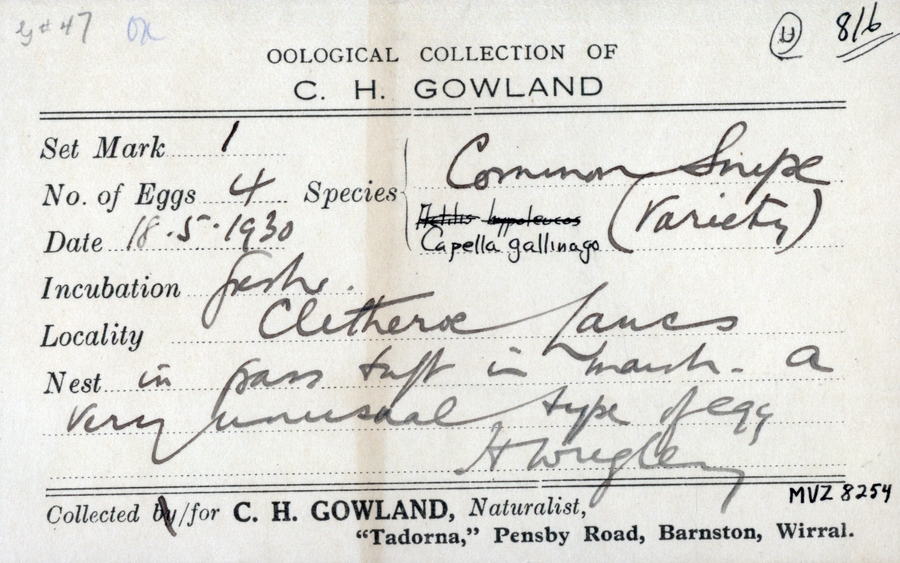 47 OK H 8/6
OOLOGICAL COLLECTION OF
C. H. GOWLAND
Set Mark 1
No. of Eggs 4 Species Common Snipe
(Variety)
Date 18.5.1930 Actitis hypoleucos
Capella gallinago
Incubation fresh.
Locality Clitheroe Lancs
Nest in grass tuft in marsh. A
very unusual type of egg
H Wrigley
Collected by/for C. H. GOWLAND, Naturalist,
MVZ 8254
"Tadorna," Pensby Road, Barnston, Wirral.